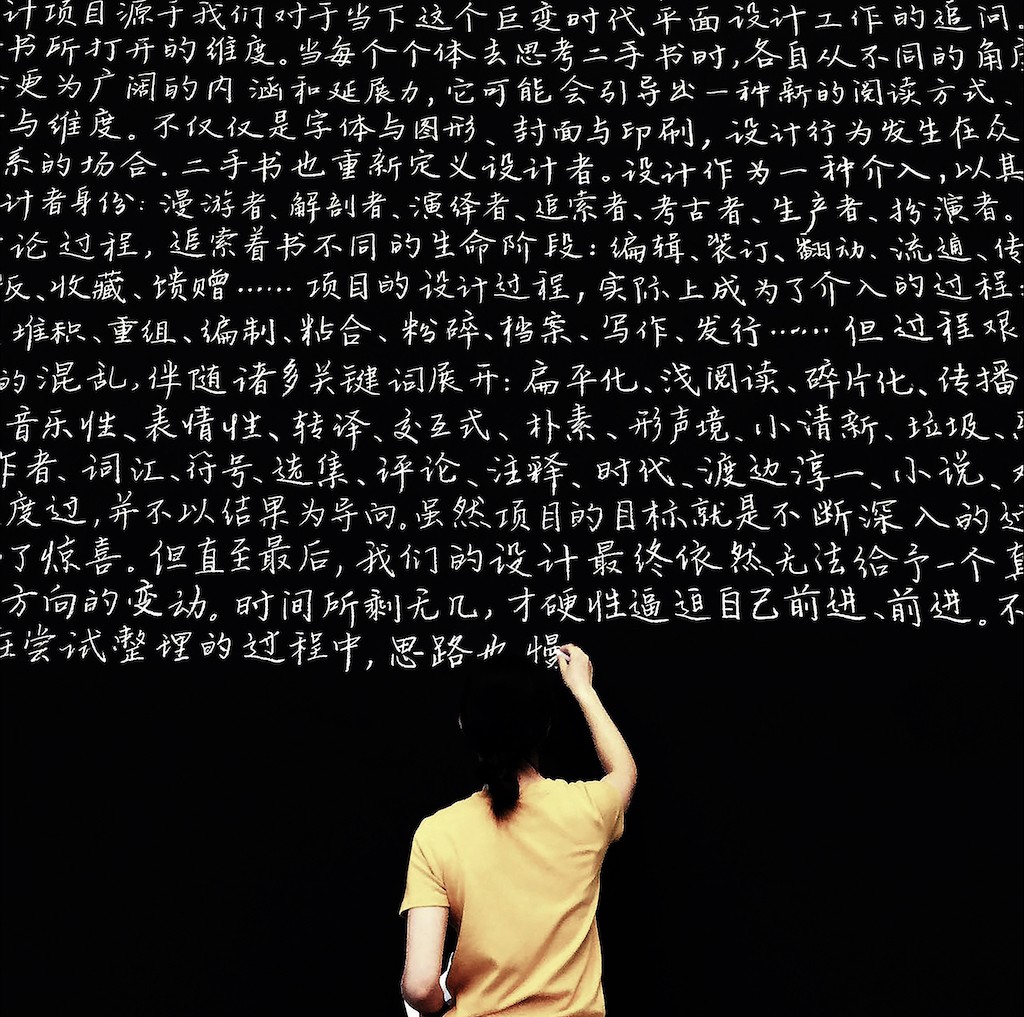 计项目源于我们对于当下这个巨变时代平面设计工作的追问。
书所打开的维度。当每个个体去思考二手书时,各自从不同的角度
更为广阔的内涵和延展力,它可能会引导出一种新的阅读方式、
与维度。不仅仅是字体与图形、封面与印刷,设计行为发生在众
系的场合.二手书也重新定义设计者。设计作为一种介入,以其
计者身份:漫游者、解剖者、演绎者、追索者、考古者、生产者、扮演者。
论过程,追索着书不同的生命阶段:编辑、装订、翻动、流通、传
版、收藏、馈赠……项目的设计过程,实际上成为了介入的过程:
堆积、重组、编制、粘合、粉碎、档案、写作、发行……但过程艰
的混乱,伴随诸多关键词展开:扁平化、浅阅读、碎片化、传播
音乐性、表情性、转译、交互式、朴素、形声境、小清新、垃圾、
作者、词汇、符号、选集、评论、注释、时代、渡边淳一、小说、
度过,并不以结果为导向。虽然项目的目标就是不断深入的过
了惊喜。但直至最后,我们的设计最终依然无法给予一个真
方向的变动。时间所剩无几,才硬性逼迫自己前进、前进。不
在尝试整理的过程中,思路也慢